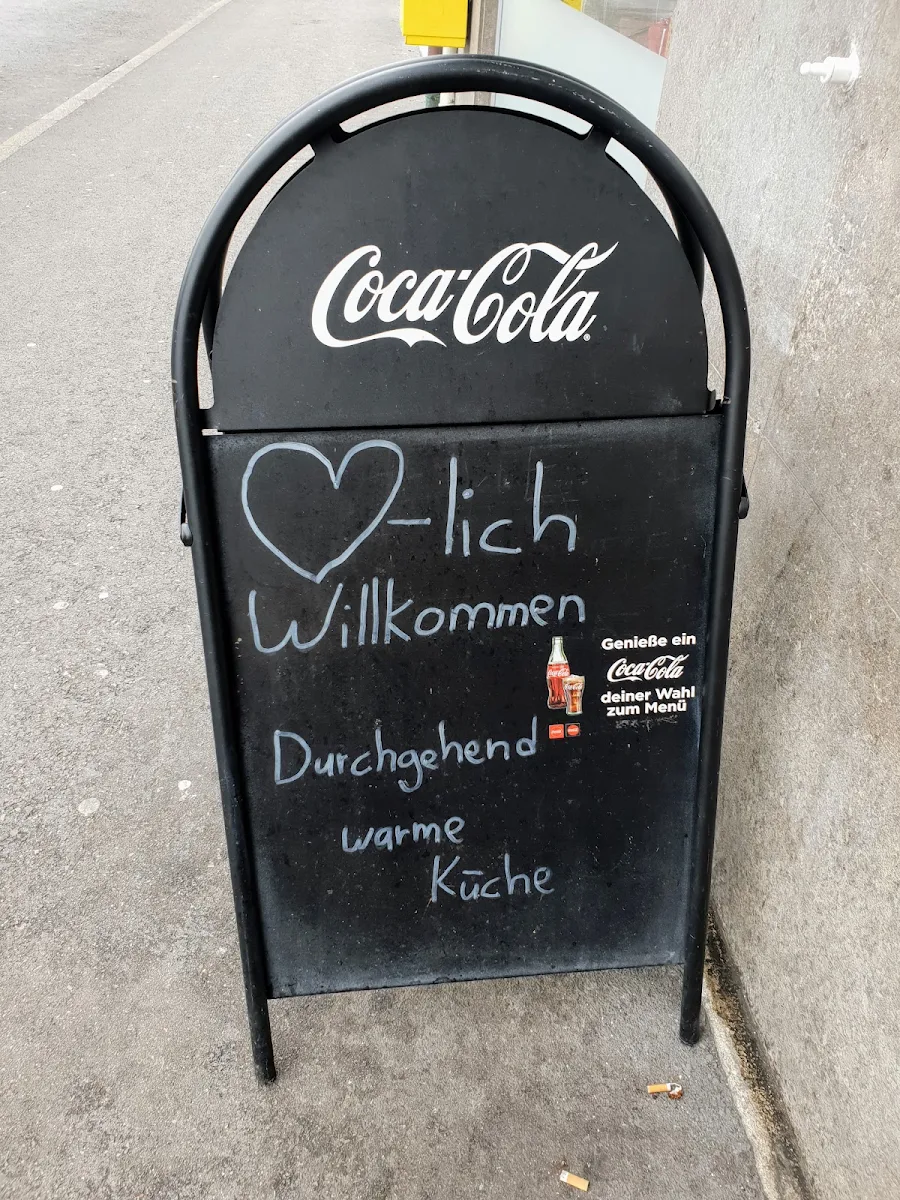 Coca-Cola
♡-lich
Willkommen
Genieße ein
Coca-Cola
deiner Wahl
zum Menü
Durchgehend
warme
Küche